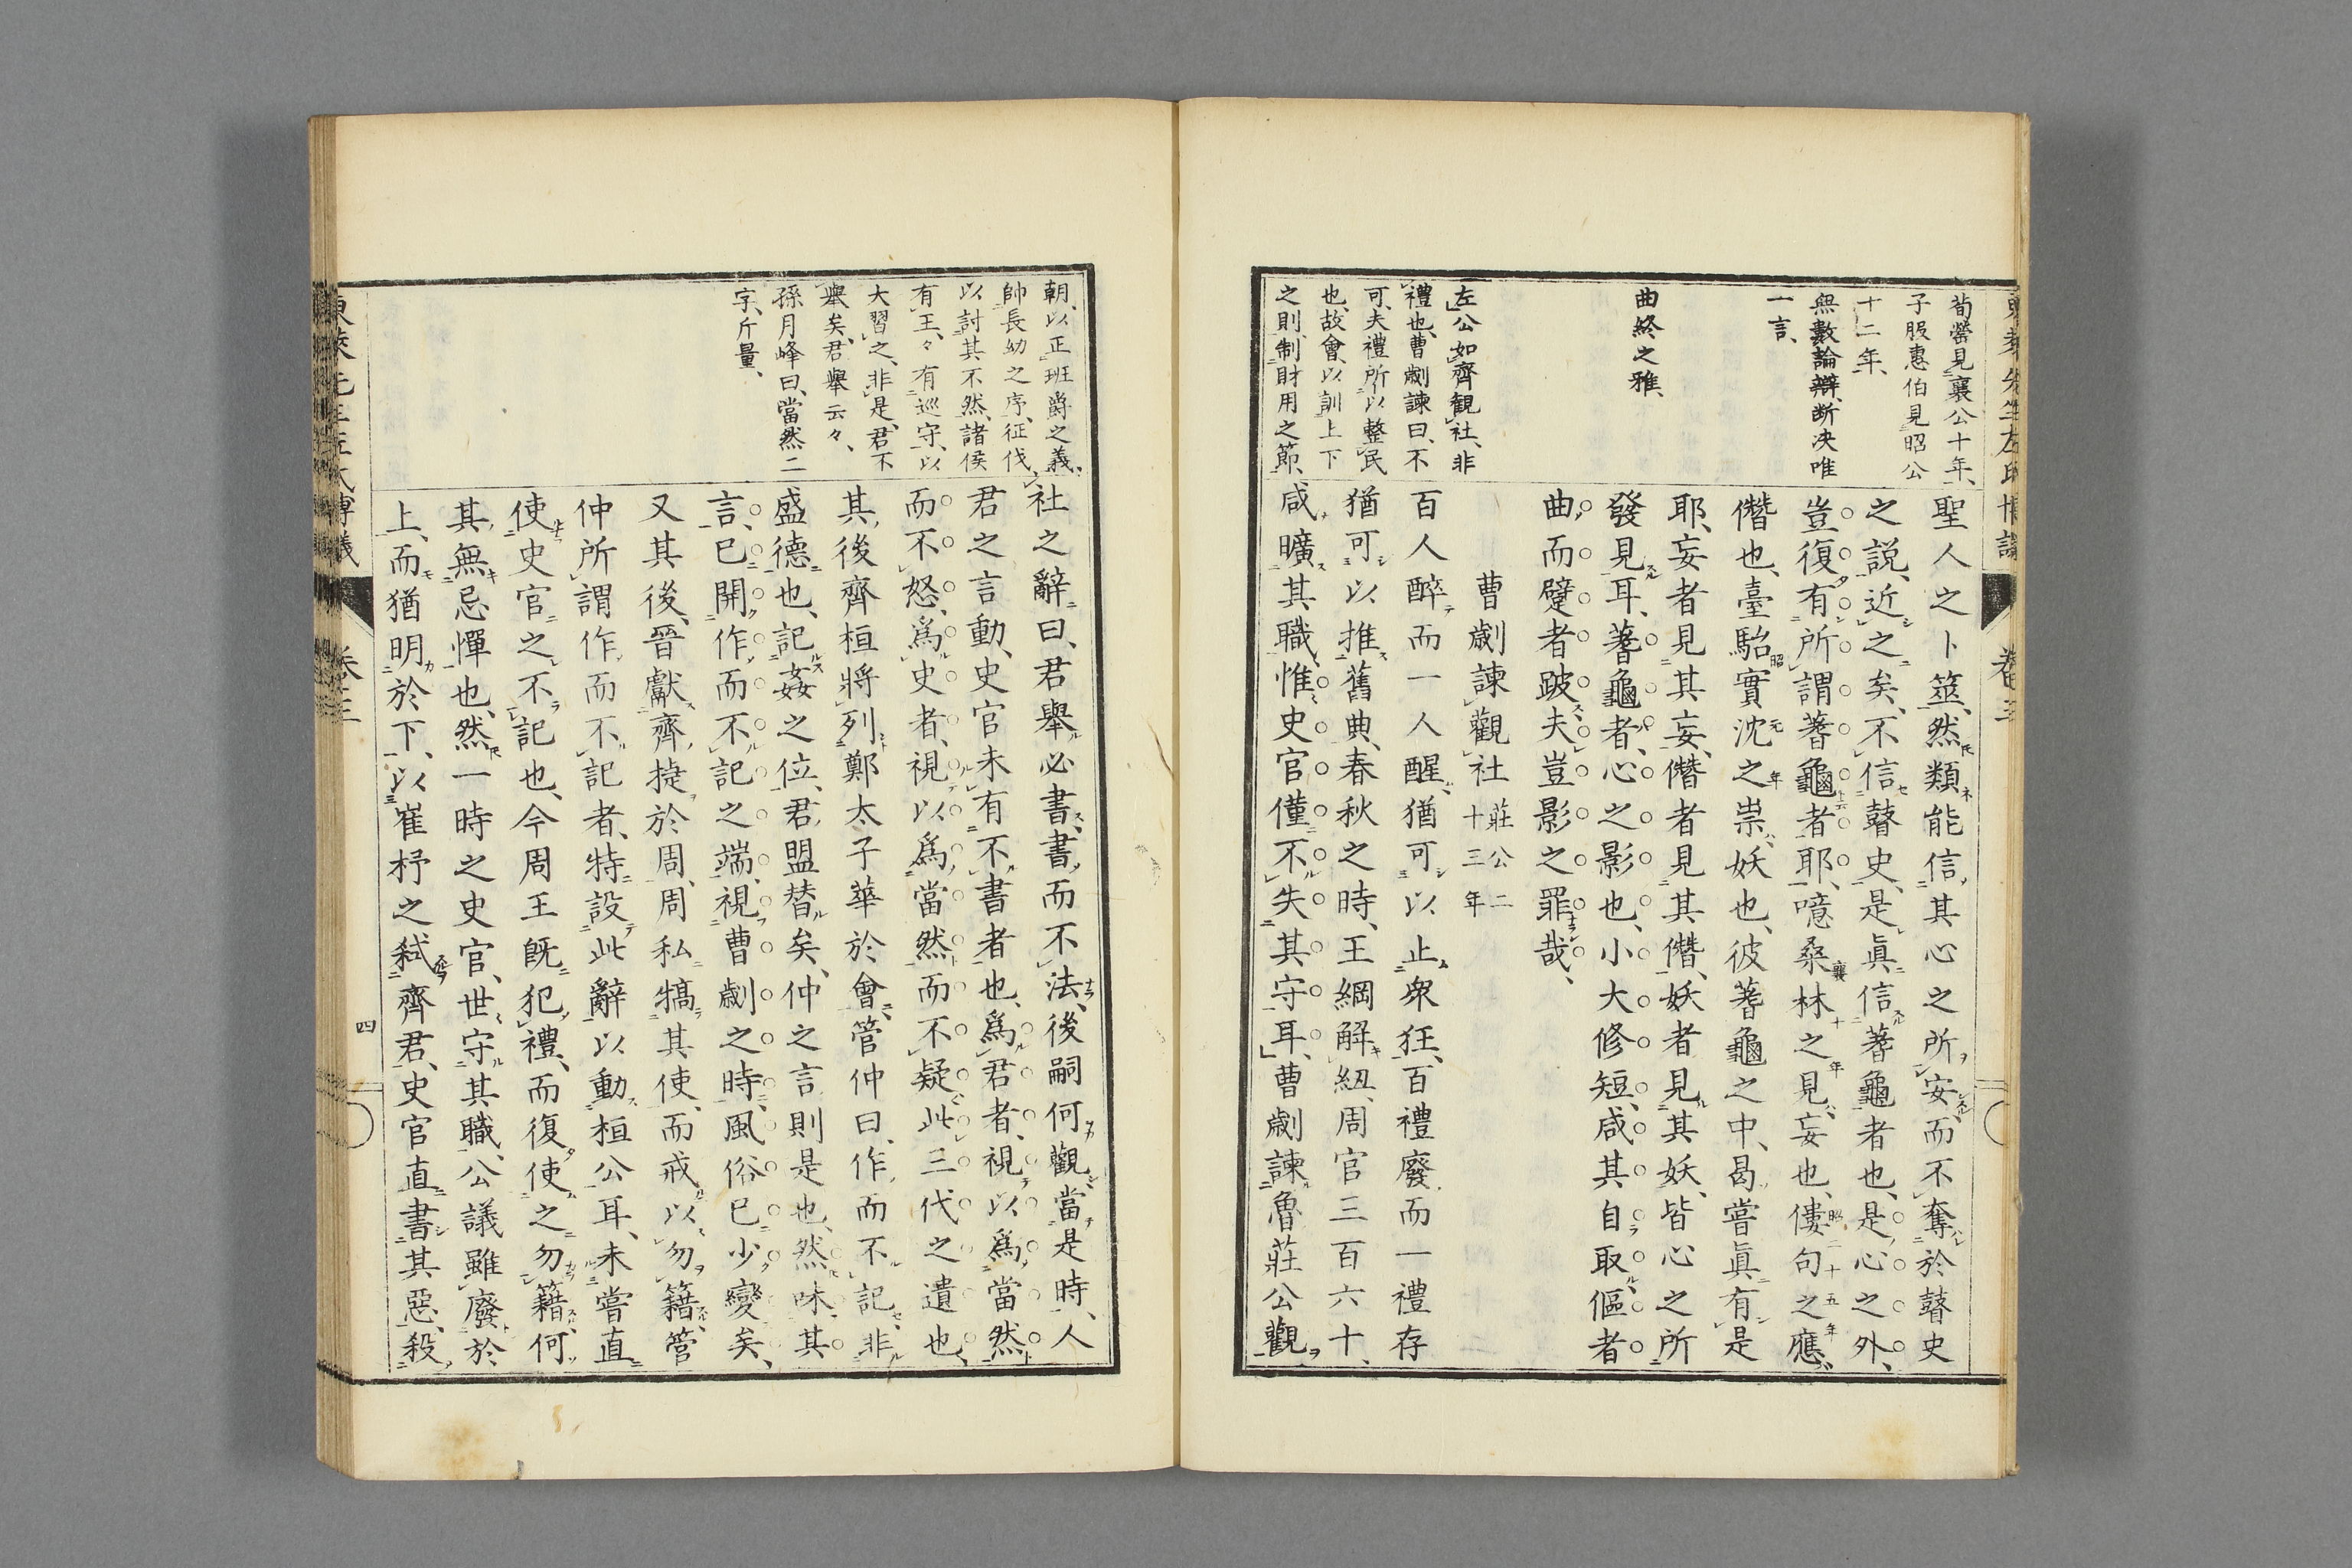 荀罃見襄公十年、
子服惠伯見昭公
十二年、
無數論辯、断决唯
一言、
曲終之雅、
左公如齊観社、非
禮也、曹劌諫曰、不
可、夫禮所以整民
也、故會、以訓上下
之則、制財用之節、
聖人之卜筮、然類能信其心之所安、而不奪於瞽史
之説、近之矣、不信瞽史、是眞信蓍龜者也、是心之外、
豈復有所謂蓍龜者耶、噫桑林之見、妄也、僂句之應、
僭也、臺駘實沈之祟、妖也、彼蓍龜之中、曷嘗眞有是
耶、妄者見其妄、僭者見其僭、妖者見其妖、皆心之所
發見耳、蓍龜者、心之影也、小大修短、咸其自取、傴者
曲、而躄者跛、夫豈影之罪哉、
曹劌諫觀社 莊公二十三年
百人醉而一人醒、猶可以止衆狂、百禮廢而一禮存
猶可以推舊典、春秋之時、王綱解紐、周官三百六十、
咸曠其職、惟史官僅不失其守耳、曹劌諫魯莊公觀
朝、以正班爵之義、
帥長幼之序、征伐、
以討其不然、諸侯
有王、々有巡守、以
大習之、非是、君不
舉矣、君舉云々、
孫月峰曰、當然二
字、斤量、
社之辭曰、君舉必書、書而不法、後嗣何觀、當是時、人
君之言動、史官未有不書者也、爲君者、視以爲當然
而不怒、爲史者、視以爲當然而不疑、此三代之遺也、
其後齊桓將列鄭太子華於會、管仲曰、作而不記、非
盛德也、記姦之位、君盟替矣、仲之言則是也、然味其
言、已開作而不記之端、視曹劌之時、風俗已少變矣、
又其後、晉獻齊捷於周、周私犒其使、而戒以勿籍、管
仲所謂作而不記者、特設此辭以動桓公耳、未嘗直
使史官之不記也、今周王既犯禮、而復使之勿籍、何
其無忌憚也、然一時之史官、世守其職、公議雖廢於
上、而猶明於下、以崔杼之弑齊君、史官直書其惡、殺
四